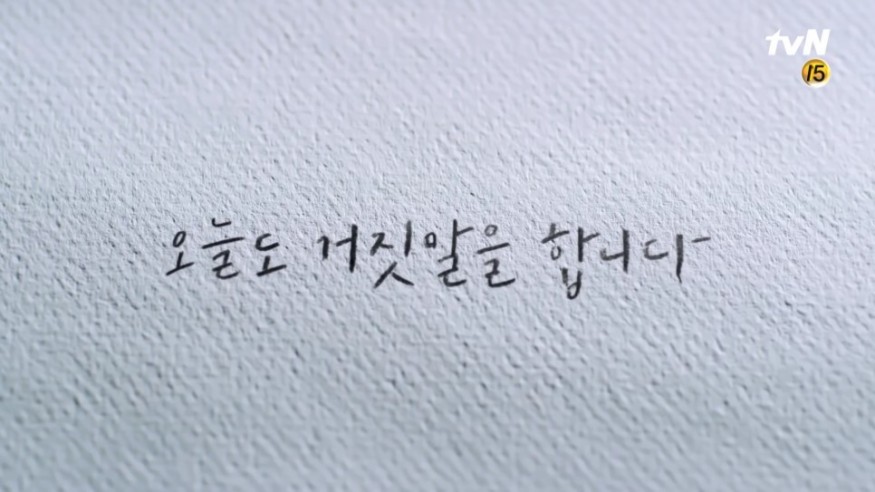 tvN
15
오늘도 거짓말을 합니다